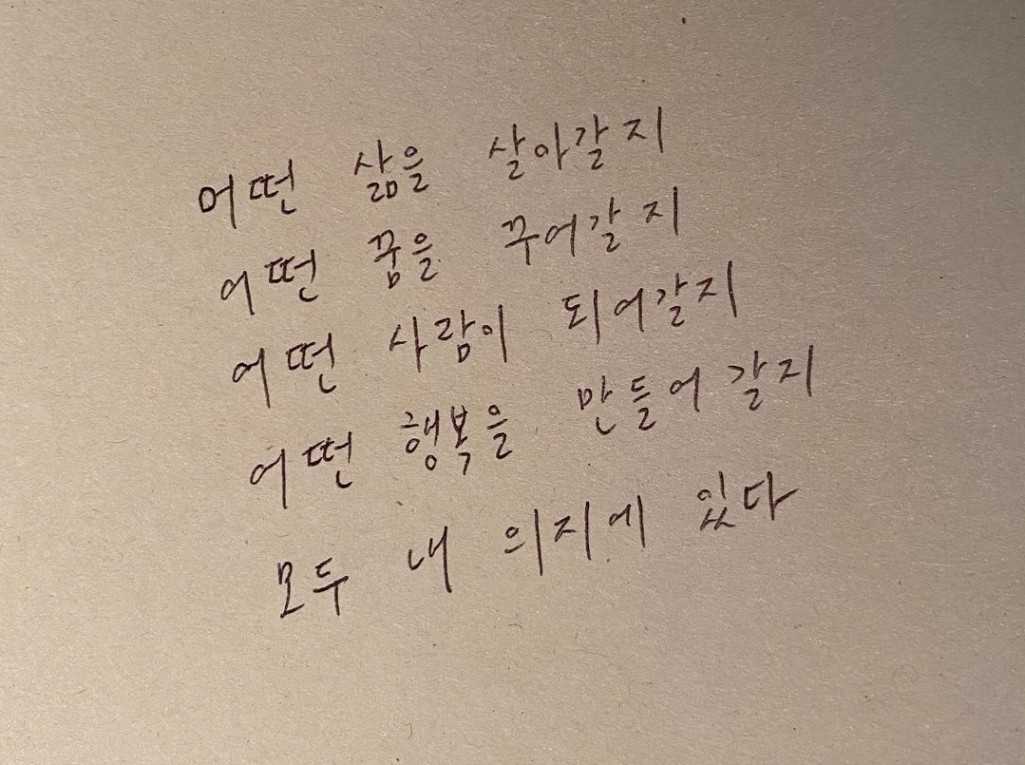 어떤 삶을 살아갈지
어떤 꿈을 꾸어갈지
어떤 사람이 되어갈지
어떤 행복을 만들어갈지
모두 내 의지에 있다